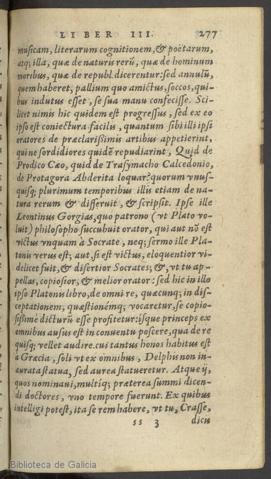 LIBER III. 277
musicam, literarum cognitionem, & poëtarum,
atq; illa, quæ de naturis rerū, quæ de hominum
moribus, quæ de republ. dicerentur: sed annulū,
quem haberet, pallium quo amictus, soccos, qui-
bus indutus esset, se sua manu confecisse. Sci-
licet nimis hic quidem est progressus, sed ex eo
ipso est coniectura facilis, quantum sibi illi ipsi
oratores de præclarissimis artibus appetierint,
qui ne sordidiores quidē repudiarint. Quid de
Prodico Cæo, quid de Trasymacho Calcedonio,
de Protagora Abderita loquar? quorum vnus-
quisq; plurimum temporibus illis etiam de na-
tura rerum & disseruit, & scripsit. Ipse ille
Leontinus Gorgias, quo patrono (vt Plato vo-
luit) philosopho succubuit orator, qui aut nō est
victus vnquam à Socrate, neq; sermo ille Pla-
tonis verus est; aut, si est victus, eloquentior vi-
delicet fuit, & disertior Socrates; &, vt tu ap-
pellas, copiosior, & melior orator: sed hic in illo
ipso Platonis libro, de omni re, quæcunq; in dis-
ceptationem, quæstionémq; vocaretur, se copio-
sissimè dicturū esse profitetur: isque princeps ex
omnibus ausus est in conuentu poscere, qua de re
quisq; vellet audire. cui tantus honos habitus est
a Græcia, soli vt ex omnibus, Delphis non in-
aurata statua, sed aurea statueretur. Atque ij,
quos nominaui, multiq; præterea summi dicen-
di doctores, vno tempore fuerunt. Ex quibus
intelligi potest, ita se rem habere, vt tu, Crasse,
ss 3 dicis
Biblioteca de Galicia